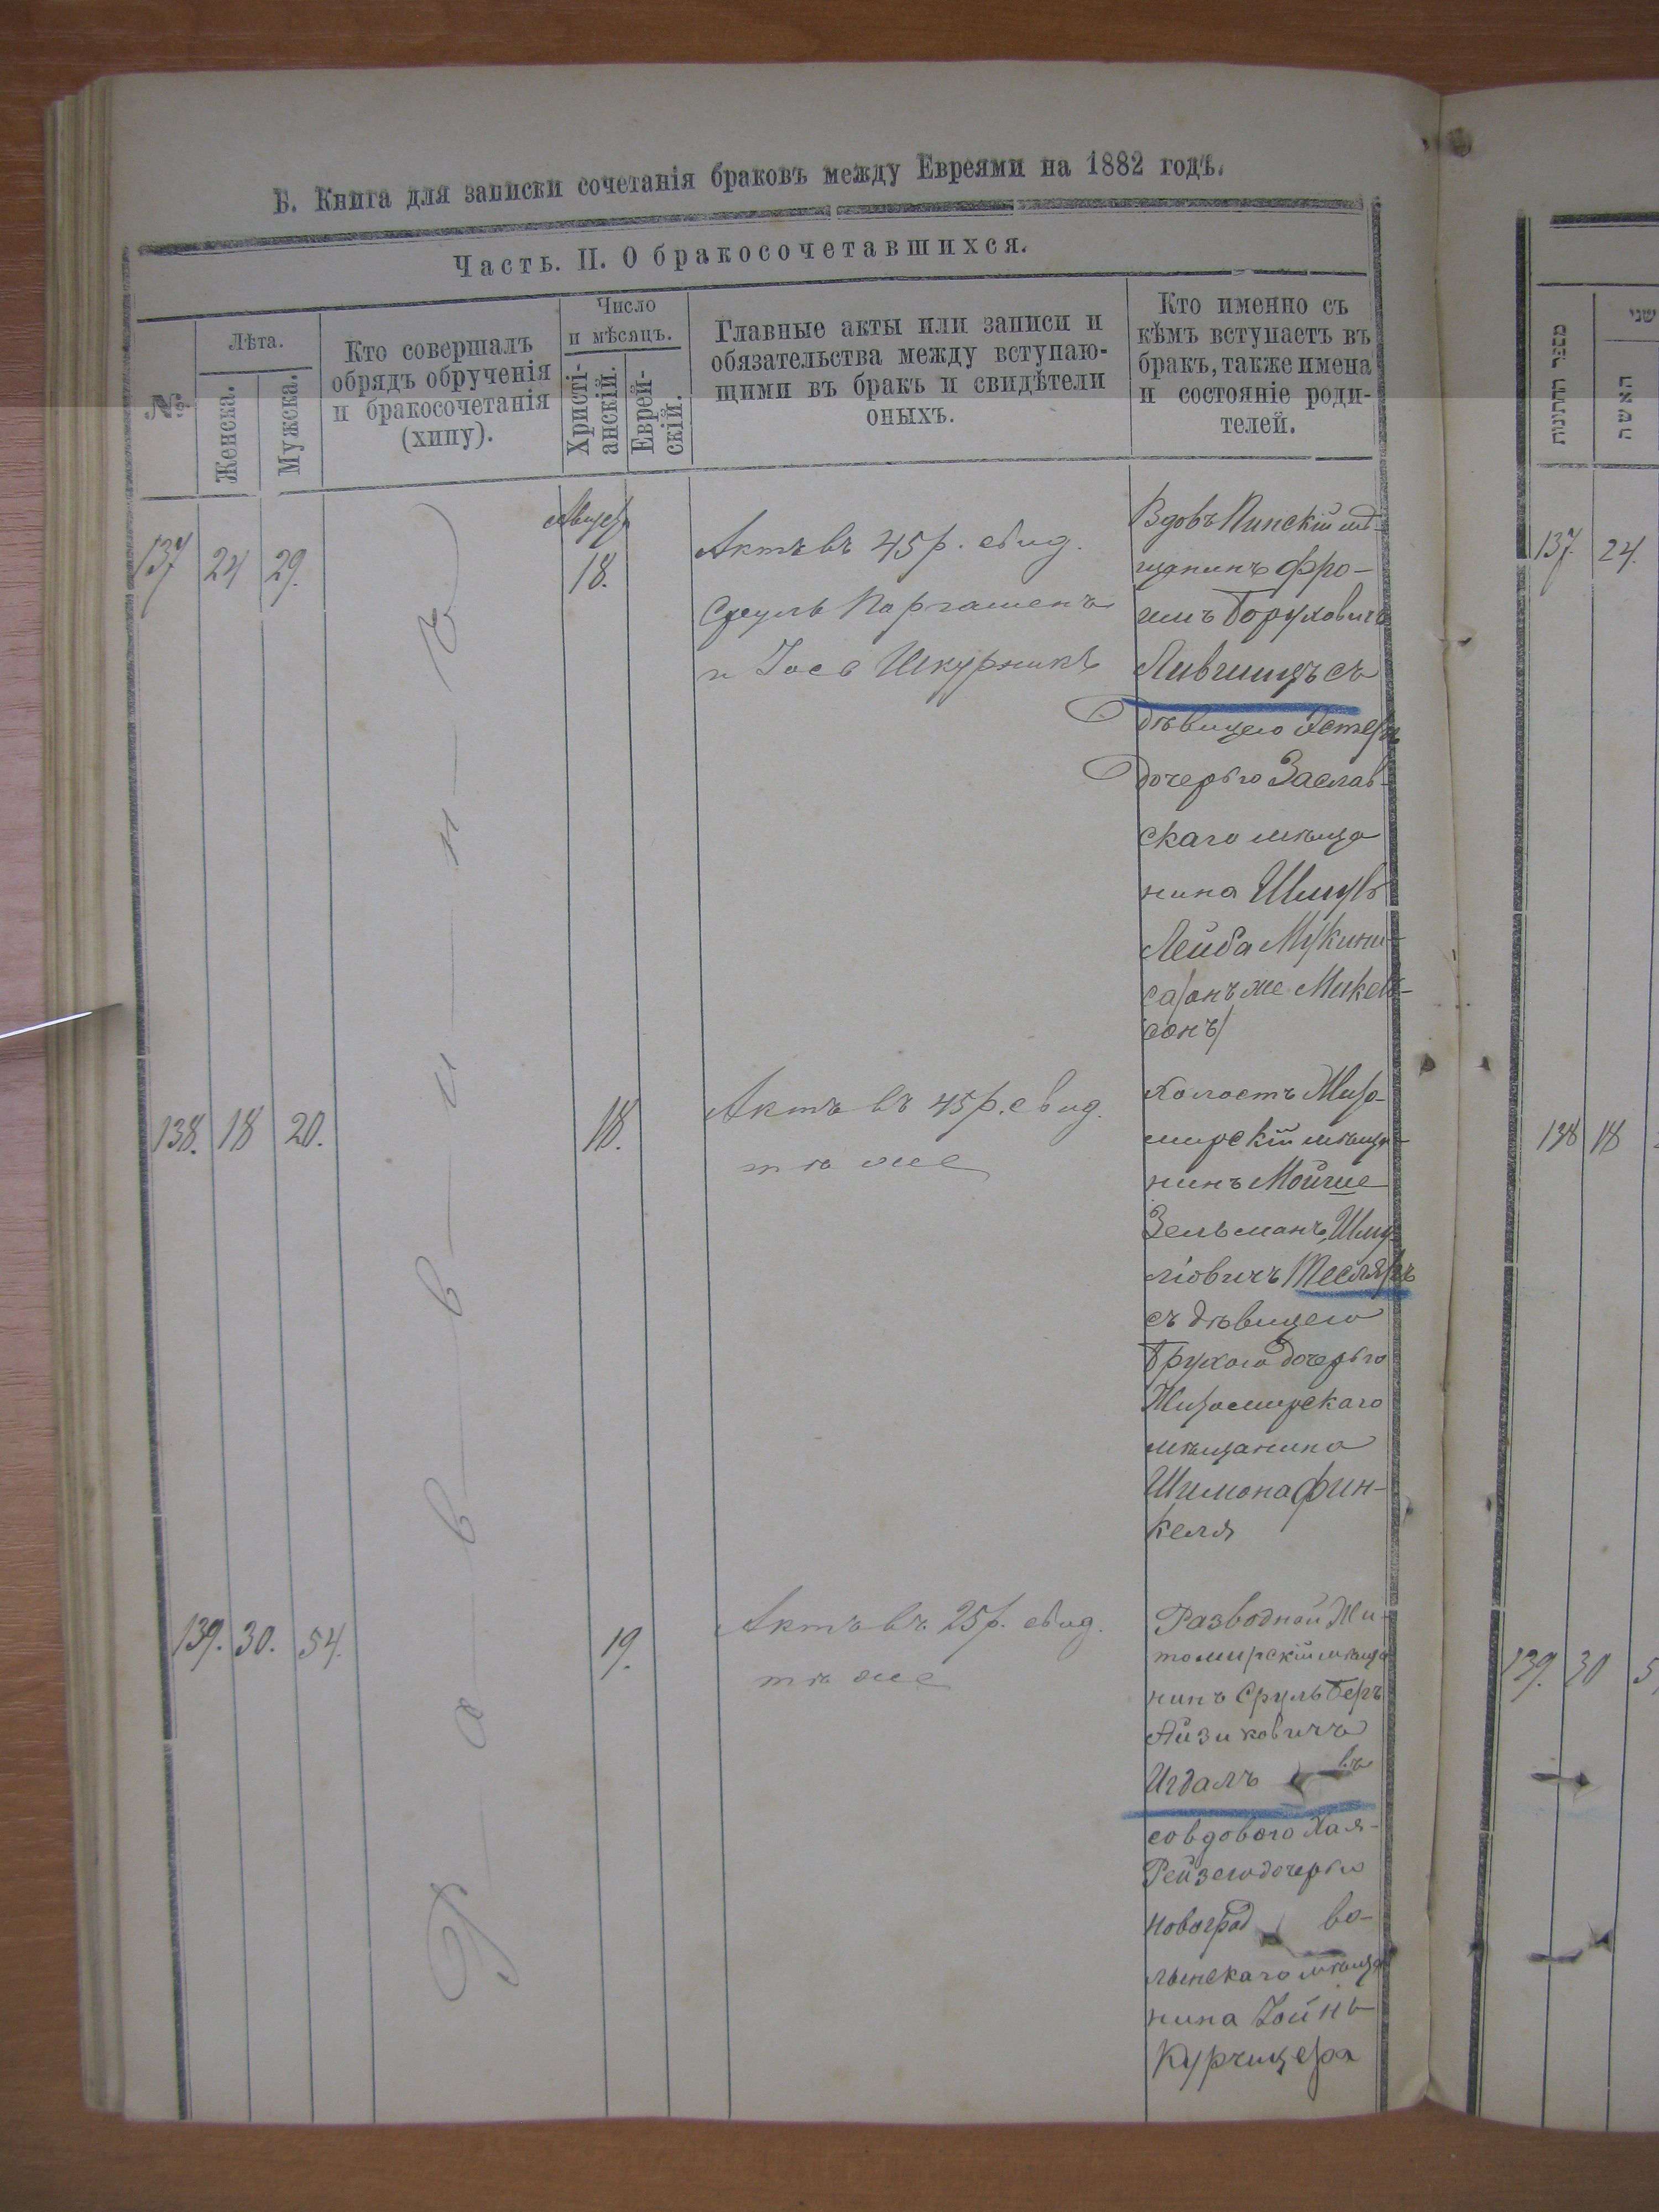 Б. Книга для записки сочетанія браковъ между Евреями на 1882 годъ.
Часть. II. О бракосочетавшихся.
№
Лѣта.
Женска.
Мужска.
Кто совершалъ
обрядъ обрученія
и бракосочетанія
(хипу).
Число
и мѣсяцъ.
Христі-
анскій.
Еврей-
скій.
Главные акты или записи и
обязательства между вступаю-
щими въ бракъ и свидѣтели
оныхъ.
Кто именно съ
кѣмъ вступаетъ въ
бракъ, также имена
и состояніе роди-
телей.
137 24 29.
18.
Актъ въ 45 р. свид.
Сруль
и Іось Шкурникъ
Вдовъ Пинскій мѣ-
щанинъ Фро-
имъ Боруховичъ
Лившицъ съ
дѣвицею Эстеръ
дочерью Заслав-
скаго мѣща
нина Шмуль
Лейба
онъ же Микель-
сонъ/
138. 18 20.
18.
Актъ въ 45 р. свид.
тѣ же
Холостъ Жито-
мирскій мѣща-
нинъ Мойше
Зельманъ Шму
ліовичъ Тесляръ
съ дѣвицею
Брухою дочерью
Житомирскаго
мѣщанина
Шимона Фин-
келя
139. 30. 54.
19.
Актъ въ 25 р. свид.
тѣ же
Разводной Жи-
томирскій мѣща
нинъ Сруль Беръ
Айзиковичъ
Игдалъ
со вдовою Хая-
Рейзею дочерью
Новоград во-
лынскаго мѣща
нина Іойнъ
Курчицера
Раввинъ
מספר החתונות
שני
האשה
137. 24.
138 18
139. 30